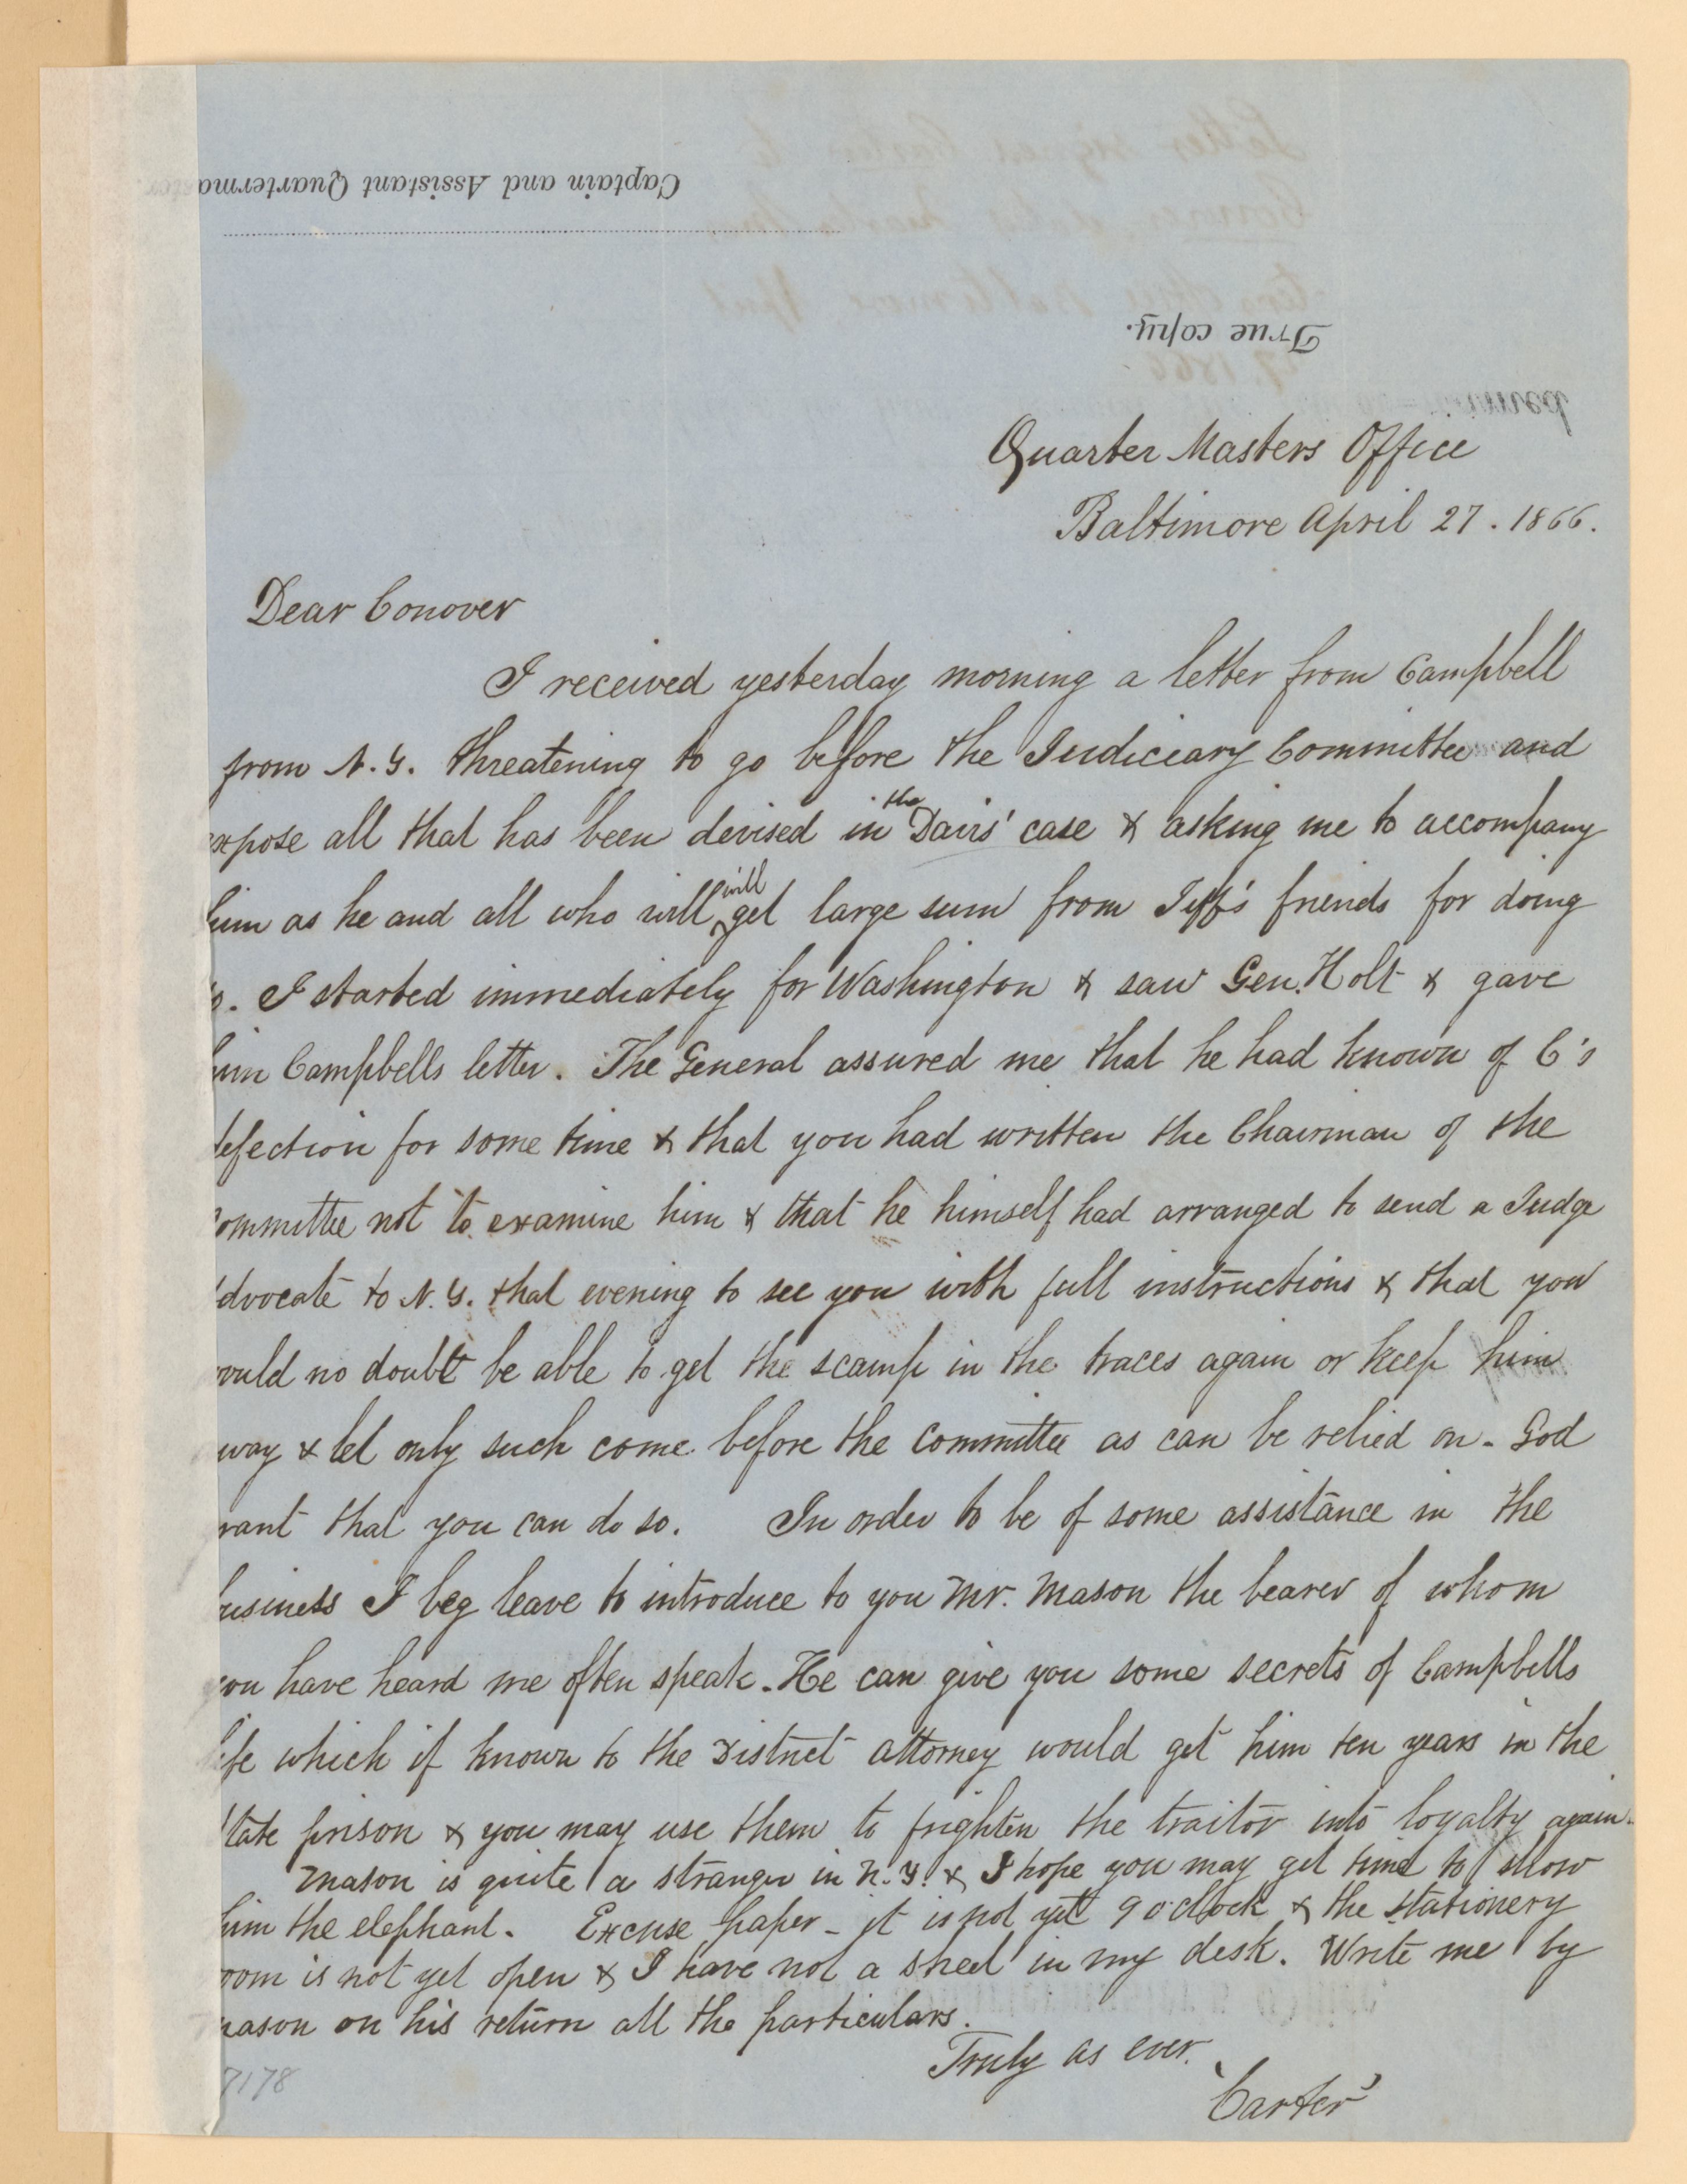 Captain and Assistant Quarterma
True copy.
Quarter Masters Office
Baltimore April 27. 1866.
Dear Conover
I received yesterday morning a letter from Campbell
from N.Y. threatening to go before the Judiciary Committee and
xpose all that has been devised in the Davis' case & asking me to accompany
him as he and all who will will get large sum from Jeff's friends for doing
so. I started immediately for Washington & saw Gen. Holt & gave
him Campbells letter. The General assured me that he had known of C's
defection for some time & that you had written the Chairman of the
committee not to examine him & that he himself had arranged to send a Judge
Advocate to N.Y. that evening to see you with full instructions & that you
would no doubt be able to get the scamp in the traces again or keep him
way & let only such come before the committee as can be relied on. God
rant that you can do so. In order to be of some assistance in the
business I beg leave to introduce to you Mr. Mason the bearer of whom
you have heard me often speak. He can give you some secrets of Campbells
life which if known to the District attorney would get him ten years in the
State prison & you may use them to frighten the traitor into loyalty again.
Mason is quite a stranger in N.Y. & I hope you may get time to show
him the elephant. Excuse paper - it is not yet 9 o'clock & the stationery
room is not yet open & I have not a sheet in my desk. Write me by
mason on his return all the particulars.
Truly as ever.
'Carter'
7178